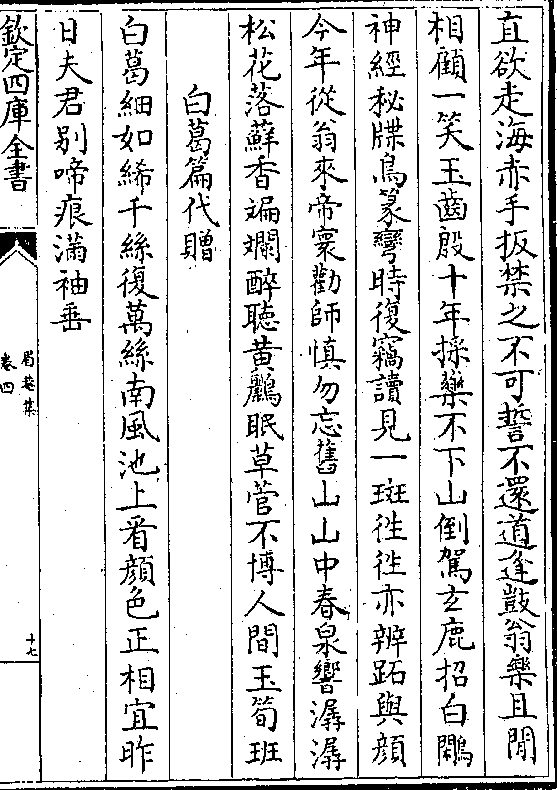 直欲走海赤手扳禁之不可誓不還道逢鼓翁樂且閒
相顧一笑玉齒殷十年採藥不下山倒駕玄鹿招白鷴
神經秘牒鳥篆彎時復竊讀見一斑徃徃亦辨跖與顔
今年從翁來帝寰勸師慎勿忘舊山山中春泉響潺潺
松花落蘚香斒斕醉聽黄鸝眠草菅不博人間玉筍班
白葛篇代贈
白葛細如絺千絲復萬絲南風池上看顔色正相宜昨
日夫君别啼痕滿袖垂
欽定四庫全書
眉菴集
卷四
十七